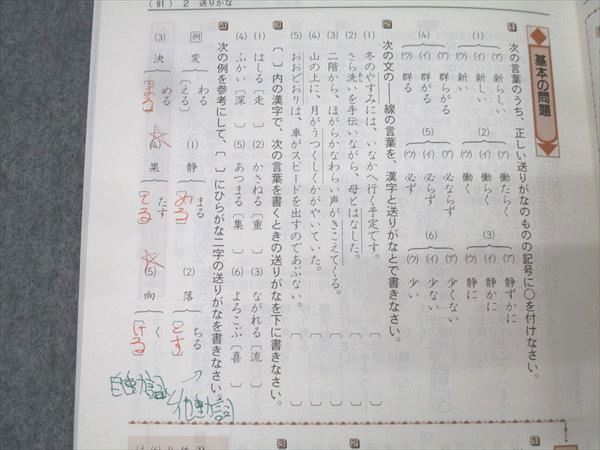 (91) 2 送りがな
基本の問題
1 次の言葉のうち、正しい送りがなのものの記号に○を付けなさい。
(1) (ア) 新らしい (イ) 新しい (ウ) 新い
(2) (ア) 働たらく (イ) 働らく (ウ) 働く
(3) (ア) 静ずかに (イ) 静かに (ウ) 静に
(4) (ア) 群らがる (イ) 群がる (ウ) 群る
(5) (ア) 必ならず (イ) 必らず (ウ) 必ず
(6) (ア) 少くない (イ) 少ない (ウ) 少い
2 次の文の――線の言葉を、漢字と送りがなとで書きなさい。
(1) 冬のやすみには、いなかへ行く予定です。〔 〕
(2) さら洗いを手伝いながら、母とはなした。〔 〕
(3) 二階から、ほがらかなわらい声がきこえてくる。〔 〕
(4) 山の上に、月がうつくしくかがやいていた。〔 〕
(5) おおどおりは、車がスピードを出すのであぶない。〔 〕
3 〔 〕内の漢字で、次の言葉を書くときの送りがなを下に書きなさい。
(1) はしる〔走 〕 (2) かさねる〔重 〕 (3) ながれる〔流 〕
(4) ふかい〔深 〕 (5) あつまる〔集 〕 (6) よろこぶ〔喜 〕
4 次の例を参考にして、〔 〕にひらがな二字の送りがなを書きなさい。
例 変 わる 〔える〕
(1) 静 まる 〔める〕
(2) 落 ちる 〔とす〕
(3) 決 める 〔まる〕
(4) 果 たす 〔てる〕
(5) 向 く 〔ける〕
自動詞と他動詞
1
2
3